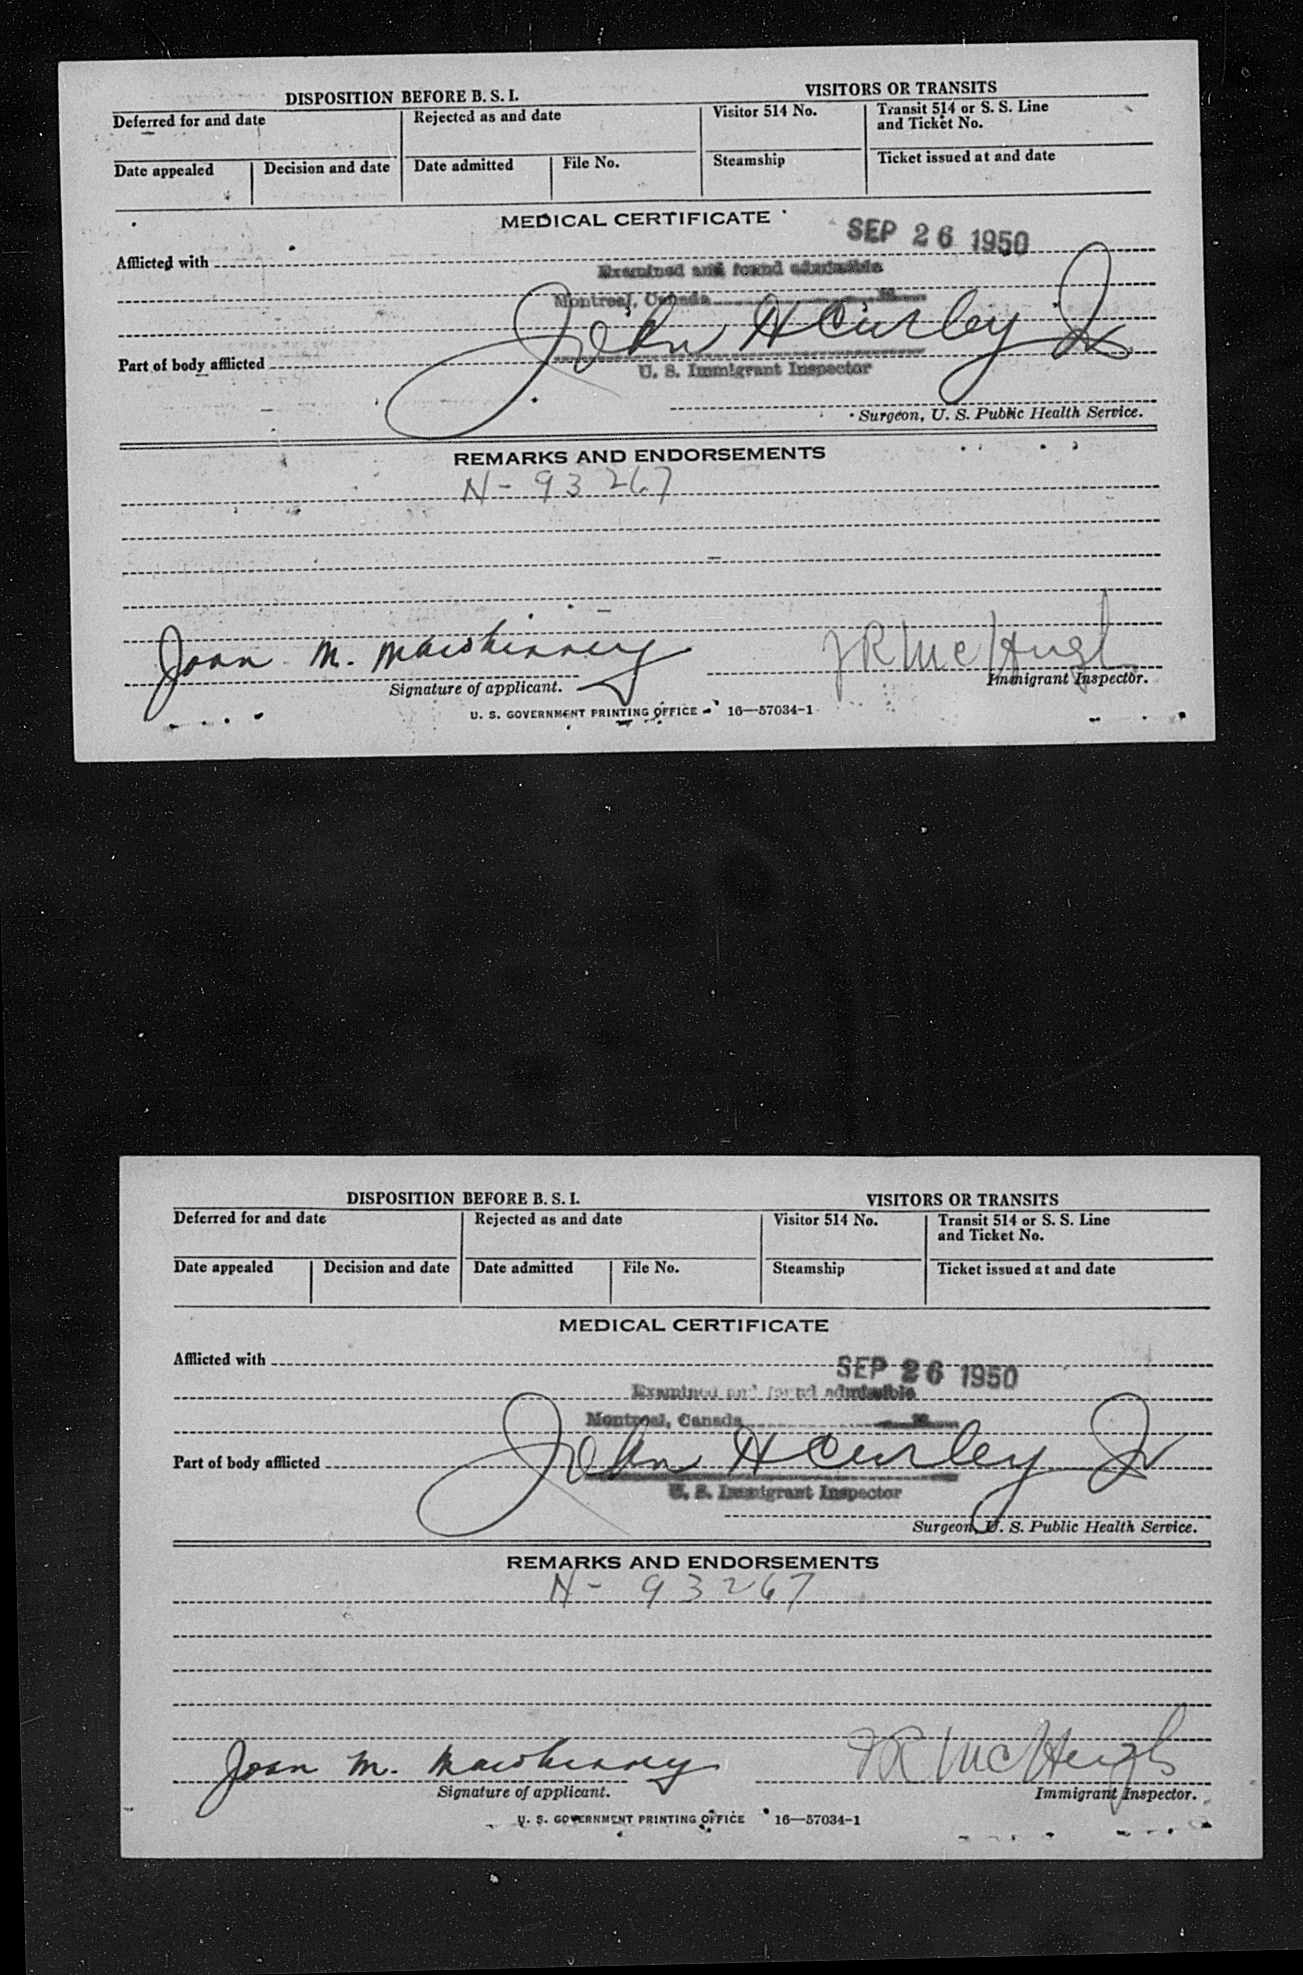 DISPOSITION BEFORE B. S. I. VISITORS OR TRANSITS
Deferred for and date Rejected as and date Visitor 514 No. Transit 514 or S. S. Line
and Ticket No.
Date appealed Decision and date Date admitted File No. Steamship Ticket issued at and date
MEDICAL CERTIFICATE
SEP 26 1950
Afflicted with
Examined and found admissible
Montreal, Canada
John H Curley Jr
Part of body afflicted
U. S. Immigrant Inspector
Surgeon, U. S. Public Health Service.
REMARKS AND ENDORSEMENTS
N-93267
Joan M. Mawhinney J R McHugh
Signature of applicant. Immigrant Inspector.
U. S. GOVERNMENT PRINTING OFFICE 16—57034-1
DISPOSITION BEFORE B. S. I. VISITORS OR TRANSITS
Deferred for and date Rejected as and date Visitor 514 No. Transit 514 or S. S. Line
and Ticket No.
Date appealed Decision and date Date admitted File No. Steamship Ticket issued at and date
MEDICAL CERTIFICATE
Afflicted with SEP 26 1950
Examined and found admissible
Montreal, Canada
John H Curley Jr
Part of body afflicted
U. S. Immigrant Inspector
Surgeon, U. S. Public Health Service.
REMARKS AND ENDORSEMENTS
N- 93267
Joan M. Mawhinney J R McHugh
Signature of applicant. Immigrant Inspector.
U. S. GOVERNMENT PRINTING OFFICE 16—57034-1